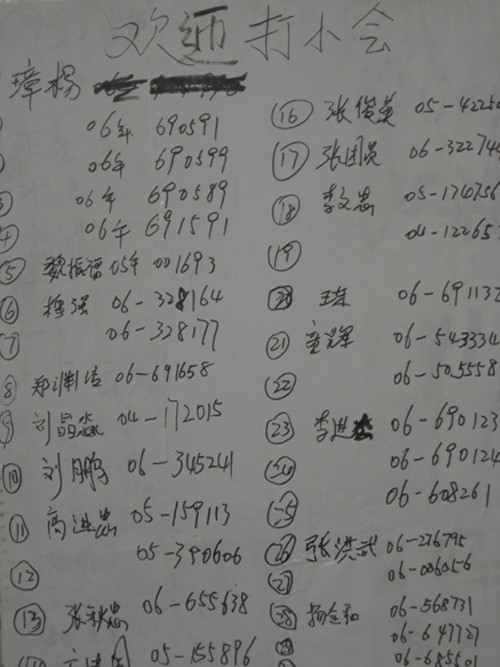 欢迎打小会
璋杨
06年 690591
06年 690599
③ 06年 690589
④ 06年 691591
⑤ 魏振福 05年 001693
⑥ 穆强 06-328164
⑦ 06-328177
⑧ 06-691658
⑨ 刘昌淼 04-172015
⑩ 刘鹏 06-345241
⑪ 高进忠 05-159113
⑫ 05-390606
⑬ 张秋忠 06-655638
05-155896
⑯ 张俊英 05-4225
⑰ 张团员 06-322744
⑱ 李文忠 05-174756
⑲ 04-12265
⑳ 06-691132
㉑ 童辉 06-543334
㉒ 06-505558
㉓ 李进 06-690123
㉔ 06-690124
㉕ 06-608261
㉖ 张洪武 06-276795
㉗ 06-006056
㉘ 杨金和 06-568731
㉙ 06-647727
06-685501